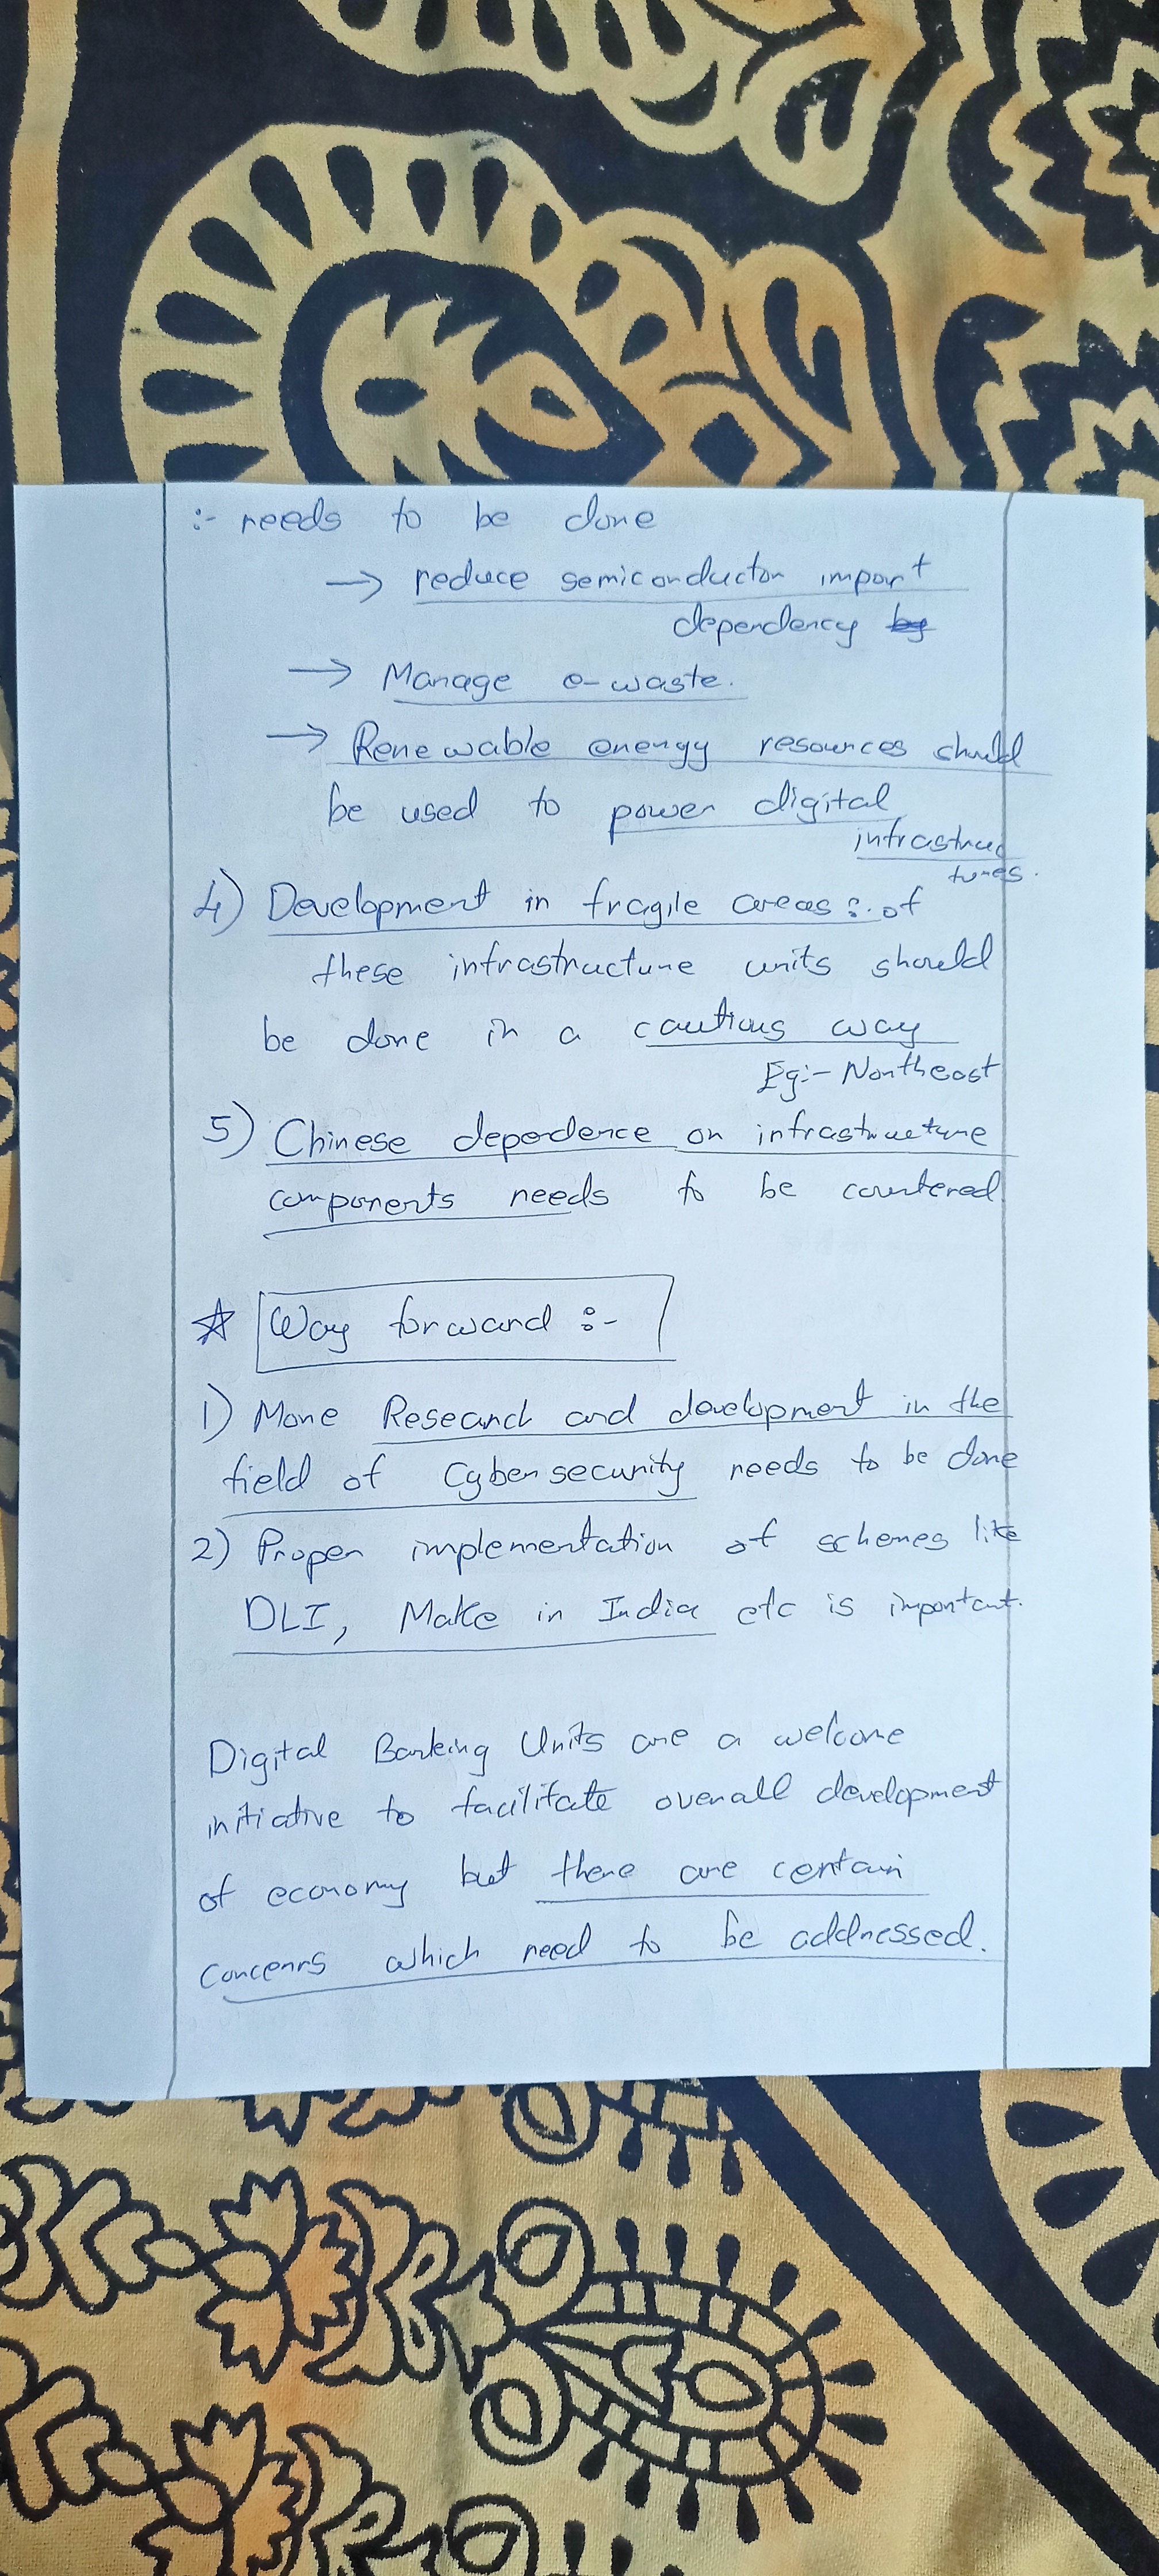 :- needs to be done
→ reduce semiconductor import
dependency by
→ Manage e-waste.
→ Renewable energy resources should
be used to power digital
infrastruc
tures.
4) Development in fragile areas :- of
these infrastructure units should
be done in a cautious way
Eg:- Northeast
5) Chinese dependence on infrastructure
components needs to be countered
☆ Way forward :-
1) More Research and development in the
field of Cybersecurity needs to be done
2) Proper implementation of schemes like
DLI, Make in India etc is important.
Digital Banking Units are a welcome
initiative to facilitate overall development
of economy but there are certain
concerns which need to be addressed.